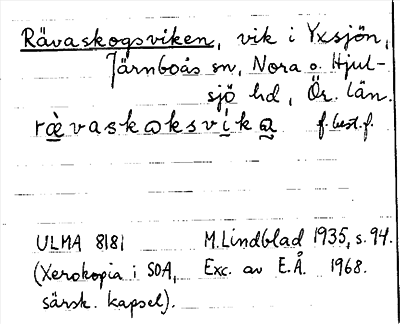 Rävaskogsviken, vik i Yxsjön,
Järnboås sn, Nora o. Hjul-
sjö hd, Ör. län.
rævaskoksvíka f. best. f.
ULMA 8181 M. Lindblad 1935, s. 94.
(Xerokopia i SOA, Exc. av E.Å. 1968.
särsk. kapsel).